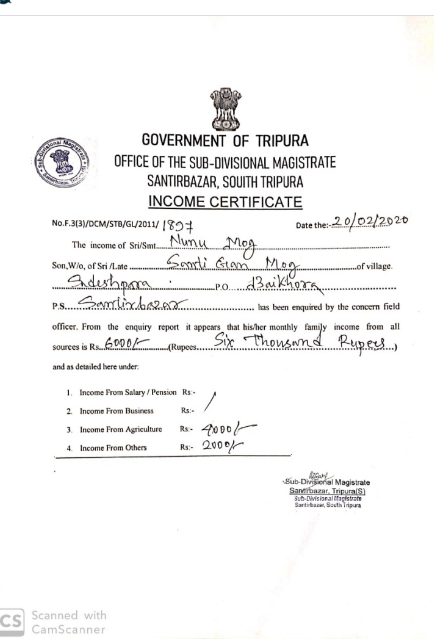 GOVERNMENT OF TRIPURA
OFFICE OF THE SUB-DIVISIONAL MAGISTRATE
SANTIRBAZAR, SOUITH TRIPURA
INCOME CERTIFICATE
No.F.3(3)/DCM/STB/GL/2011/ 1897 Date the:- 20/02/2020
The income of Sri/Smt. Nunu Mog
Son,W/o, of Sri /Late Mog of village.
P.O Baikhora
P.S. Santirbazar has been enquired by the concern field
officer. From the enquiry report it appears that his/her monthly family income from all
sources is Rs. 6000/- (Rupees. Six Thousand Rupees.)
and as detailed here under:
1. Income From Salary / Pension Rs:- /
2. Income From Business Rs:-
3. Income From Agriculture Rs:- 4000/-
4. Income From Others Rs:- 2000/-
Sub-Divisional Magistrate
Santirbazar, Tripura(S)
Sub-Divisional Magistrate
Santirbazar, South Tripura
CS Scanned with
CamScanner